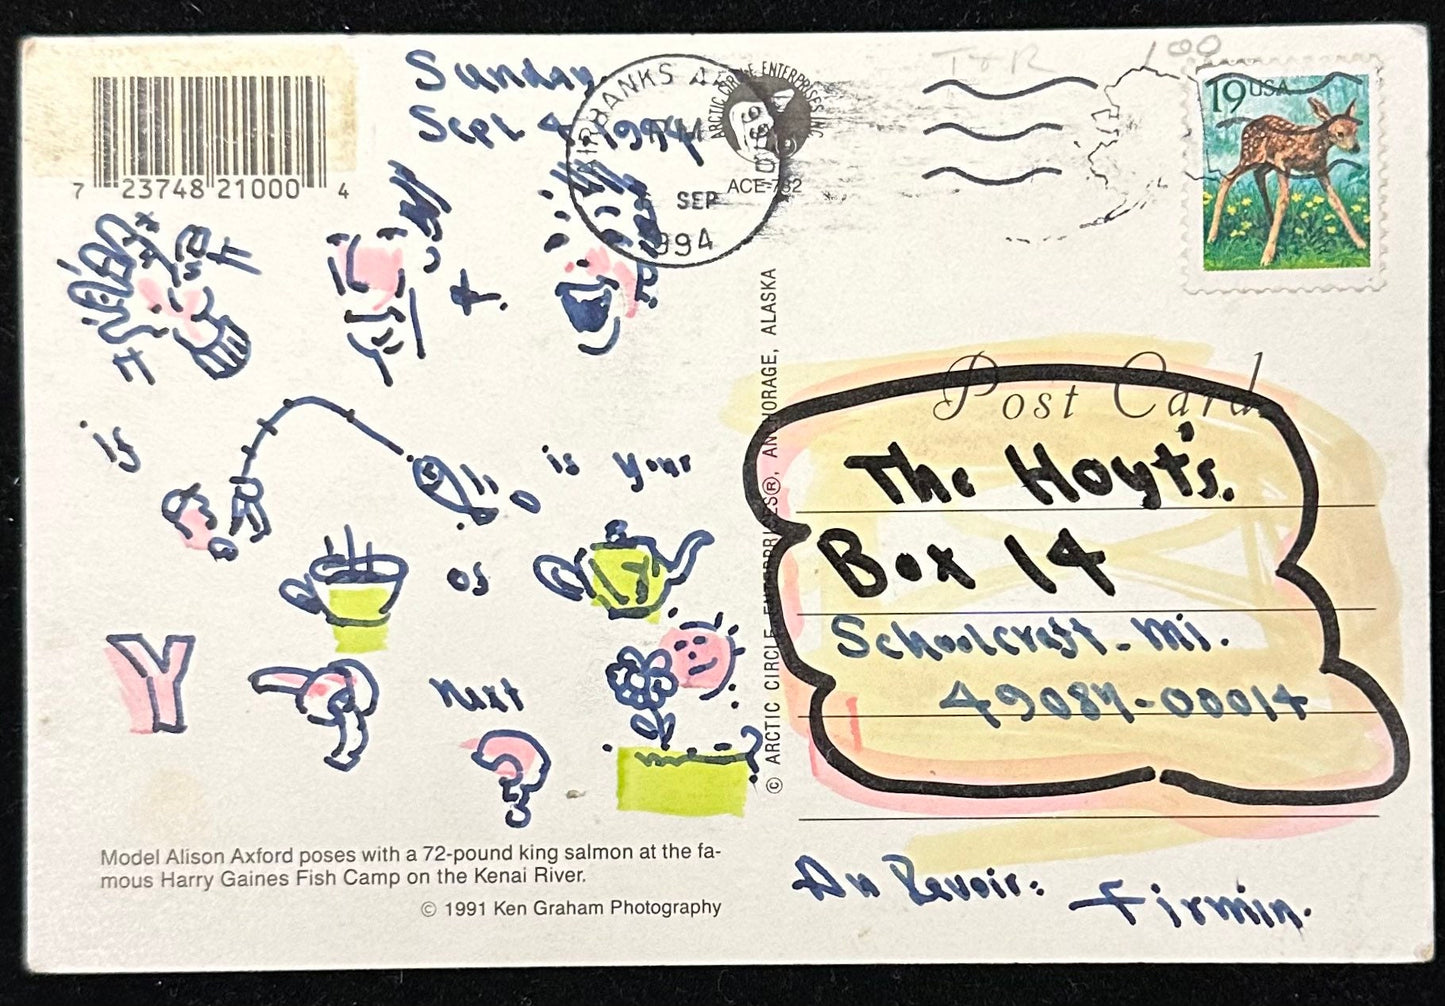 Sunday
Sept 4 1994
7 23748 21000 4
FAIRBANKS AK
SEP
1994
ARCTIC CIRCLE ENTERPRISES INC
ACE-782
19 USA
1 00
is
is your
os
Y
next
Model Alison Axford poses with a 72-pound king salmon at the fa-
mous Harry Gaines Fish Camp on the Kenai River.
© 1991 Ken Graham Photography
© ARCTIC CIRCLE ENTERPRISES®, ANCHORAGE, ALASKA
Post Card
The Hoyt's.
Box 14
Schoolcraft - Mi.
49087-00014
Au Revoir:
Firmin.